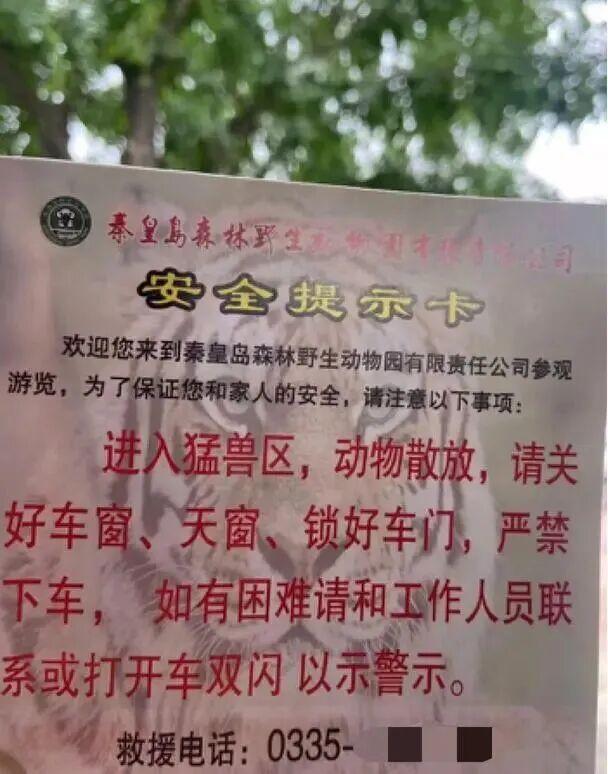 秦皇岛森林野生动物园有限责任公司
安全提示卡
欢迎您来到秦皇岛森林野生动物园有限责任公司参观
游览，为了保证您和家人的安全，请注意以下事项：
进入猛兽区，动物散放，请关
好车窗、天窗、锁好车门，严禁
下车， 如有困难请和工作人员联
系或打开车双闪 以示警示。
救援电话：0335-